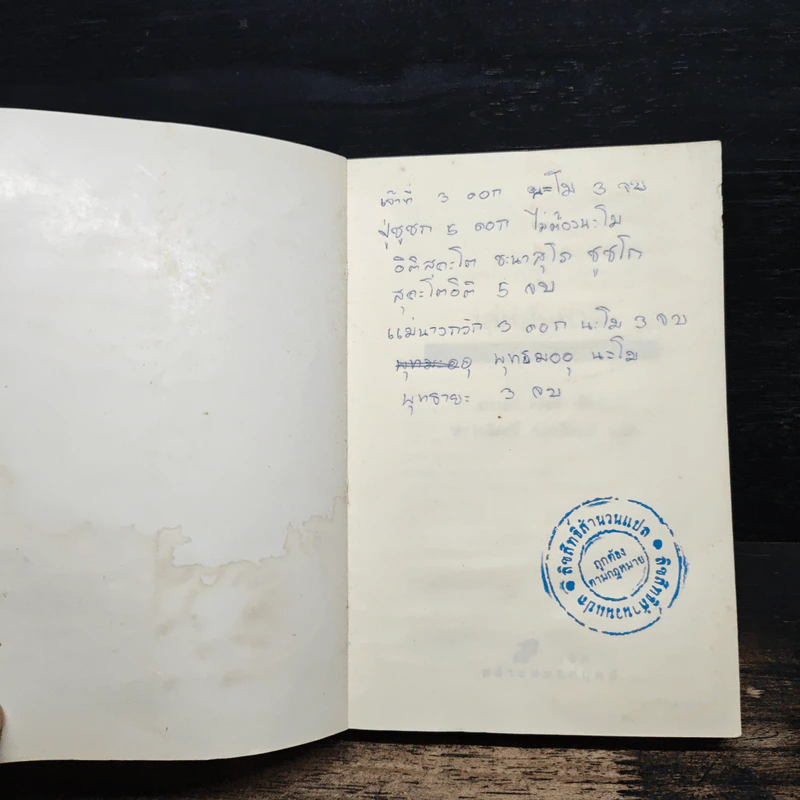 เจ้าที่ 3 ดอก นะโม 3 จบ
ปู่ชูชก 5 ดอก ไม่ต้องนะโม
อิติสุคะโต ชะนาสุโภ ชูชโก
สุคะโตอิติ 5 จบ
แม่นางกวัก 3 ดอก นะโม 3 จบ
พุทธมออุ นะโม
พุทธายะ 3 จบ
ลิขสิทธิ์สำนวนแปล • ลิขสิทธิ์สำนวนแปล •
ถูกต้อง
ตามกฎหมาย